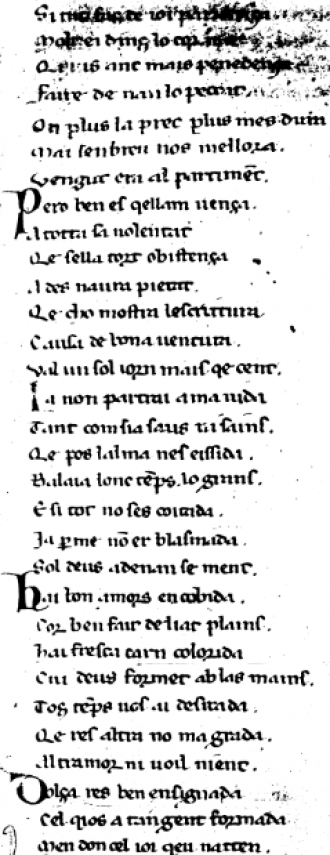 Molt ei dinz lo cor
Qeu is anc mais penedenza
Faire de nan lo pecchat
On plus la prec plus mes dura
Mai senbreu nos mellora.
Vengut era al partimēt.
Pero ben es qellam uenza.
A totta sa uolentat
Qe sella tort obistenza
A des naura pietat.
Qe cho mostra lescritura
Causa de bona uentura.
Val un sol iorn mais qe cent.
Ia non partrai a ma uida
Tant com sia saus ni sains.
Qe pos lalma nes eissida.
Balaia lonc tēps. lo grans.
E si tot no ses coitada.
Ja p me nō er blasmada.
Sol deus adenan se ment.
hai bon amors encobida.
Cor ben fait deliat plains.
hai fresca carn colorida
Cui deus formet ablas mains.
Toz tēps uos ai desirada.
Qe res altra no magrada.
Altramor ni uoil niēnt.
Dolza res ben ensignada
Cel qios a tan gent formada
Men don cel ioi qeu natten.